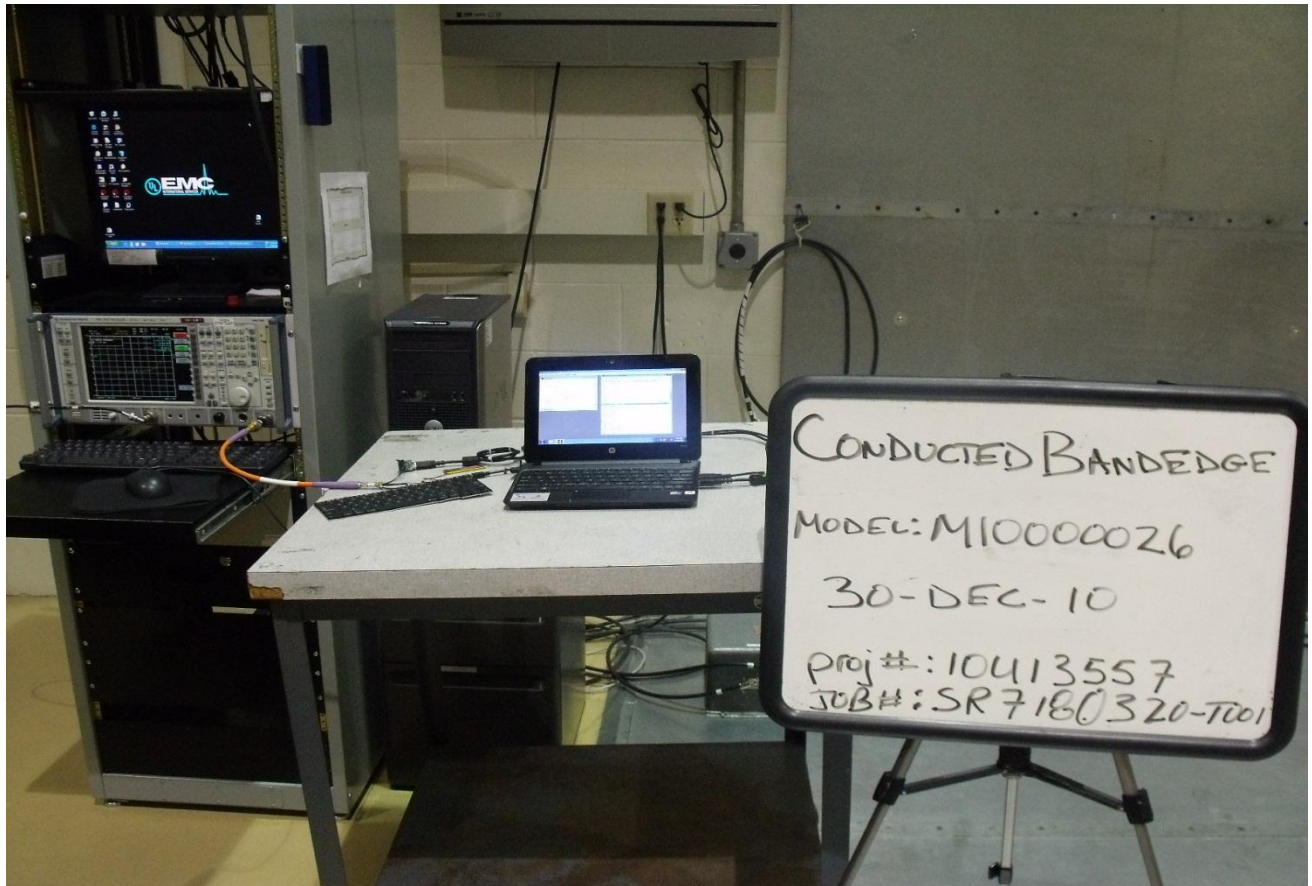 UL EMC
CONDUCTED BANDEDGE
MODEL: MI0000026
30-DEC-10
proj#: 10413557
JOB#: SR7180320-T001